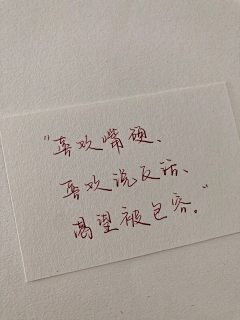 "喜欢嘴硬、
喜欢说反话、
渴望被包容。"